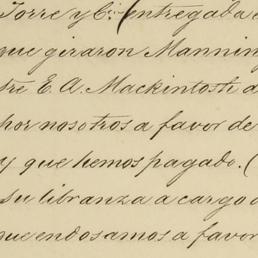 Torre y Cia. (entregada
que giraron Manning
tre E. A. Mackintosh
por nosotros a favor de
y que hemos pagado. (
su libranza a cargo
que endosamos a favor